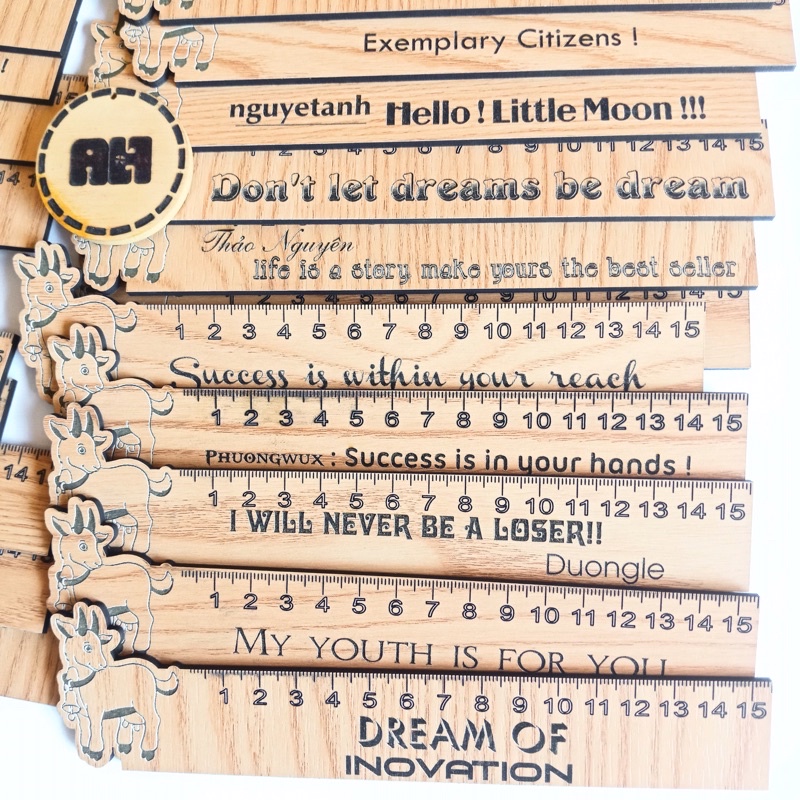 Exemplary Citizens !
!
15
nguyetanh Hello ! Little Moon !!!
AH
1 2 3 4 5 6 7 8 9 10 11 12 13 14 15
Don't let dreams be dream
14 15
Thảo Nguyên
life is a story, make yours the best seller
1 2 3 4 5 6 7 8 9 10 11 12 13 14 15
1 2 3 4 5 6 7 8 9 10 11 12 13 14 15
Success is within your reach
1 2 3 4 5 6 7 8 9 10 11 12 13 14 15
PHUONGWUX : Success is in your hands !
14 15
1 2 3 4 5 6 7 8 9 10 11 12 13 14 15
I WILL NEVER BE A LOSER!!
Duongle
1 2 3 4 5 6 7 8 9 10 11 12 13 14 15
MY YOUTH IS FOR YOU
1 2 3 4 5 6 7 8 9 10 11 12 13 14 15
DREAM OF
INOVATION